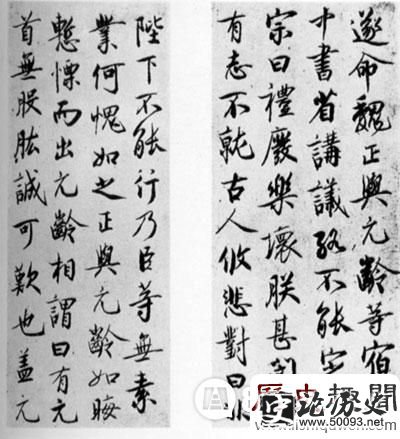 遂命魏正與元齡等宿
中書省講議不能定
宗曰禮廢樂壞朕甚
有志不就古人攸悲對曰非
陛下不能行乃臣等無素
業何愧如之正與元齡如晦
慙慄而出元齡相謂曰有元
首無股肱誠可歎也盖元
歷史趣聞
www.50093.net